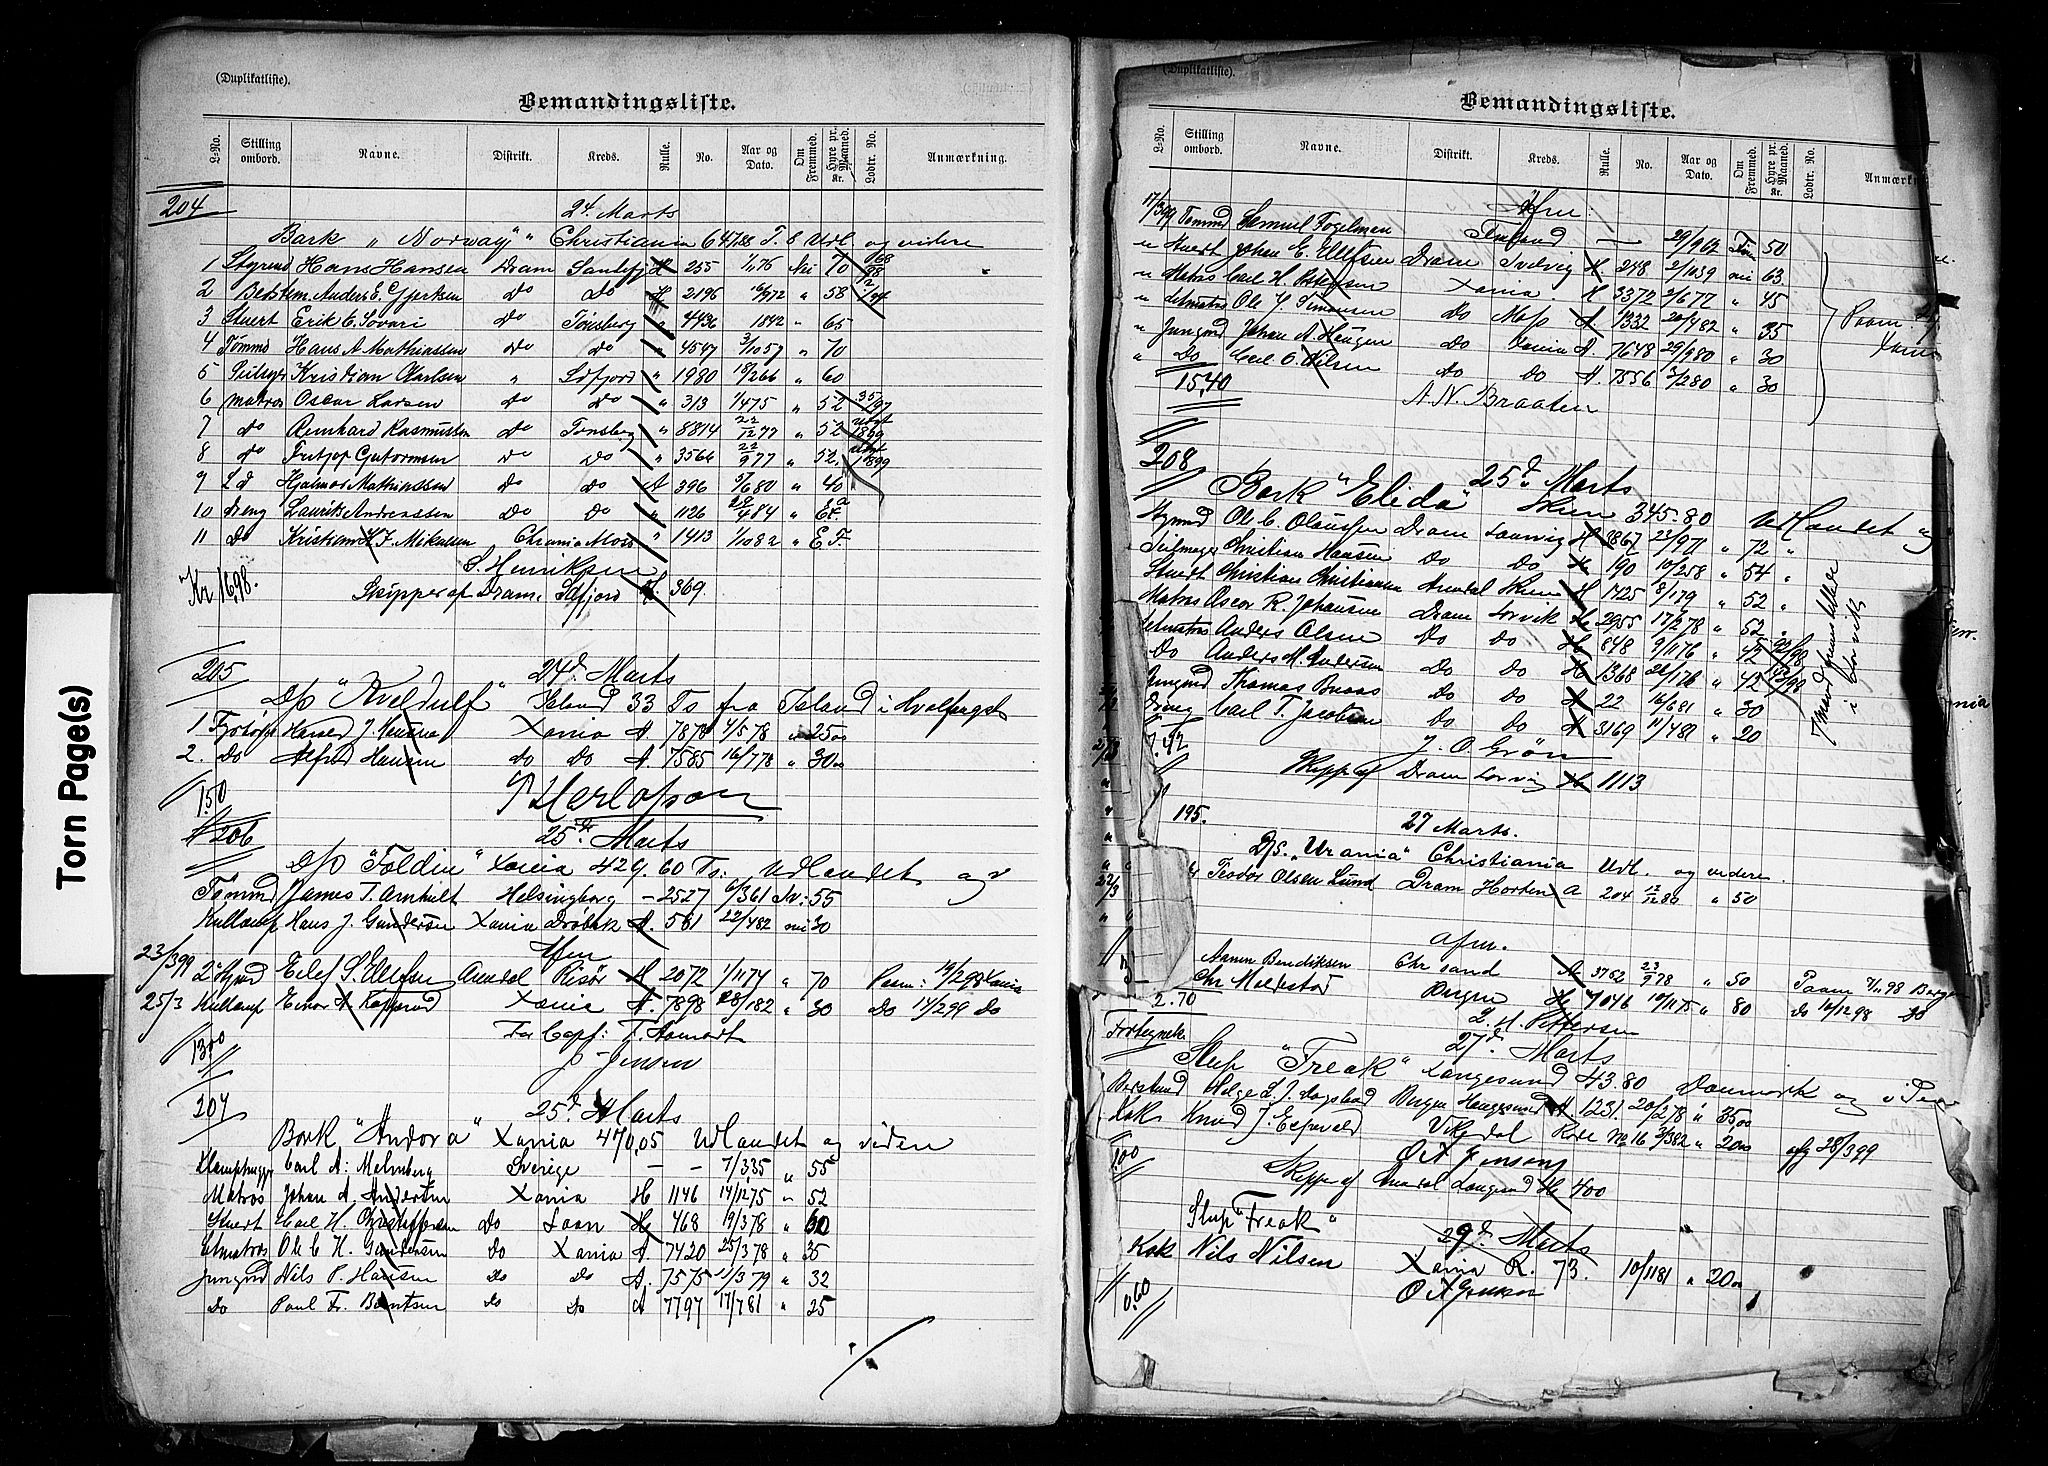 (Duplikatliste).
Bemandingsliste.
L-No. Stilling ombord. Navne. Distrikt. Kreds. Rulle. No. Aar og Dato. Om Fremmed. Hyre pr. Maaned. Kr. Lodtr. No. Anmærkning.
204
24. Marts
Bark "Norway" Christiania 647.88 T. s Udl. og videre
1 Styrmd Hans Hansen Dram Sandefj H 255 1/11 76 Nei 70
2 Bedstem. Anders E. Gjertsen Do Do H 2196 58
3 Stuert Erik E. Sovari Do Tønsberg " 4436 1842 " 65
4 Tømmd Hans A Mathiassen Do Do " 4547 3/10 57 " 70
5 Seilmgr Kristian Carlsen " Sdfjord " 1980 18/2 66 " 60
6 Matros Oscar Larsen Do Do " 313 1/4 75 " 52 35/97
7 do Reinhard Rasmussen Do Tønsberg " 8814 22/12 77 " 52 1899
8 do Fritjof Gutormsen Do Do " 3566 22/9 77 " 52. 1899
9 Ld Hjalmar Mathiassen Do Do A 396 5/6 80 " 40
10 Dreng Laurits Andreassen Do Do " 1126 28/4 84 "
11 Do Kristian H. F. Mikalsen Chrania Moss " 1413 1/10 82 " E F.
S. Henriksen
Kr 16,98.
Skipper af Dram. Sdfjord H. 369
205
24d Marts
D/s "Kveldulf" Island 33 Ts fra Island i Hvalfangst
1 Harald J. Xania A. 7878 4/5 78 " 25 00
2. Do Alfred Hansen do do A. 7585 16/7 78 " 30 00
P Herlofson
1.50
206
25de Marts
D/s "Foldin" Xania 429.60 Ts: Udlandet og v
Tømmd James T. Arnhult Helsingborg - 2527 6/3 61 Sv: 55
Kullemp Hans J. Gundersen Xania Drøbak A. 581 22/4 82 nei 30
Afm
23/3 99 2d Stymd Eilef S. Ellefsen Arendal Risør H 2072 1/11 74 " 70 Paam: 19/2 98 Xania
25/3 Kullemp Einar A Kopperud Xania A. 7898 28/1 82 " 30 Do 14/2 99 Do
For Capt: T. Aamodt
J. Jensen
13.00
207
25d Marts
Bark "Andora" Xania 470,05 Udlandet og viden
Carl A: Malmberg Sverige - - 7/3 35 " 55
Matros Johan A. Andersen Xania H 1146 14/12 75 " 52
Stuert Carl H. Christoffersen Do Laan H 468 19/3 78 " 60
Letmatros Ole C. H. Gundersen Do Xania A. 7420 25/3 78 " 35
Jungmd Nils P. Hansen Do Do A. 7575 11/3 79 " 32
Do Paul Fr. Berntsen Do Do A 7797 17/7 81 " 25
(Duplikatliste).
Bemandingsliste.
L-No. Stilling ombord. Navne. Distrikt. Kreds. Rulle. No. Aar og Dato. Om Fremmed. Hyre pr. Maaned. Kr. Lodtr. No. Anmærkn
Afm:
17/3 99 Tømmd Samuel Fogelman Finland - 29/9 62 Finn 50
" Stuert Johan E. Ellefsen Dram Svelvig H. 248 2/11 39 nei 63
" Matros Carl H. Petersen Xania. H 3372 2/6 77 " 45
" Letmatros Ole J. Simonsen Do Moss A 1332 20/4 82 " 35
" Jungmd Johan A. Haugen Do Xania A. 7648 29/9 80 " 30
" Do Carl O. Nilsen Do Do A. 7556 3/2 80 " 30
Paam
Xania
15,40
A. N. Braaten
208
25d Marts
Bark "Elida" Skien 345.80 Udlandet og
Stymd Ole C. Olaussen Dram Laurvig H 3867 23/9 71 " 72 "
Seilmager Christian Hansen Do Do H 190 10/2 58 " 54 "
Stuert Christian Christiansen Arendal Skien H 1425 8/1 79 " 52 "
Matros Oscar R. Johansen Dram Lorvik H 2955 17/2 78 " 52 "
Letmatros Anders Olsen Do Do H 848 9/1 76 " 45 92/98
Do Anders M. Andersen Do Do H 1368 26/1 76 " 42 93/98
Jungmd Thomas Do Do A 22 16/6 81 " 30
Dreng Carl T. Jacobsen Do Do A 3169 11/4 81 " 20
i Lorvik
J. O. Grøn
Skipp af Dram Lorvig H 1113
195.
27 Marts.
D/S. "Urania" Christiania Udl. og videre.
22/3 " Teodor Olsen Lund Dram Horten A 204 12/12 80 " 50
afm.
Aamn Bendiksen Chr sand A 3762 23/9 78 " 50 Paam 7/11 98 Bergen
Chr Meldestad Bergen H 1046 10/11 75 " 80 Do 10/12 98 Do
2.70
L. H. Pettersen
27d Marts
Slup "Freak" Langesund 43.80 Danmark og i
Bestmd Helge S. J. Bergen Haugesund A 1231. 20/2 78 " 35,00
Kok Knud J. Egsvald Vikedal Rode No 16 3/3 82 " 20 00 afg 28/3 99
O A Jensen
Skipp af Arendal Langsund H 400
Slup "Freak"
29d Marts
Kok Nils Nilsen Xania R. 73. 10/11 81 " 20 00
O A Jensen
0.60
Torn Page(s)